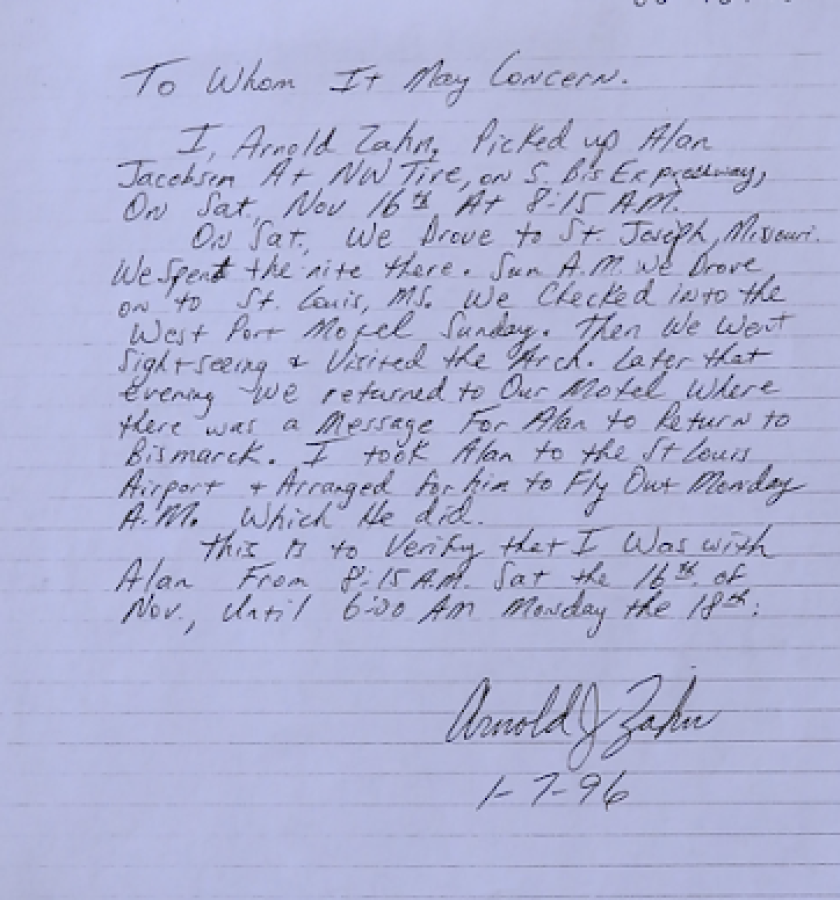 To Whom It May Concern.
I, Arnold Zahn, Picked up Alan
Jacobsen At NW Tire, on S. Bis Expressway,
On Sat, Nov 16th At 8:15 A.M.
On Sat, We Drove to St. Joseph, Missouri.
We Spent the nite there. Sun A.M. We Drove
on to St. Louis, MS. We Checked into the
West Port Motel Sunday. Then We Went
Sightseeing + Visited the Arch. Later that
evening We returned to Our Motel Where
there was a Message For Alan to Return to
Bismarck. I took Alan to the St Louis
Airport + Arranged for him to Fly Out Monday
A.M. Which He did.
This is to Verify that I Was with
Alan From 8:15 A.M. Sat the 16th of
Nov., Until 6:00 AM Monday the 18th.
Arnold J Zahn
1-7-96